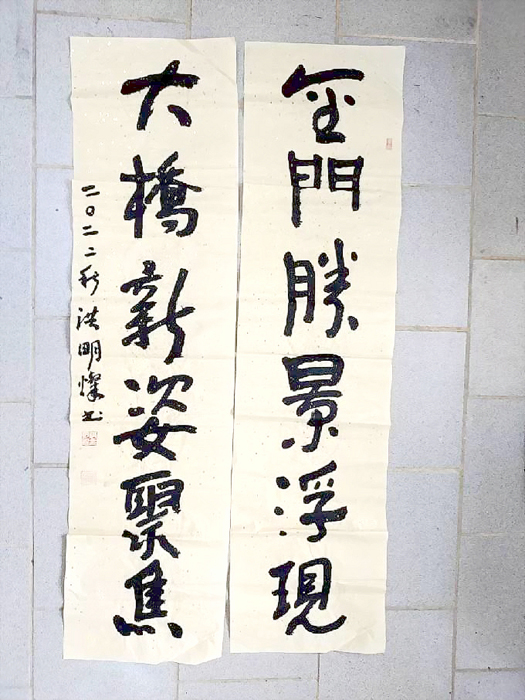 金門勝景浮現
大橋新姿聚焦
二〇二二秋 洪明燦書